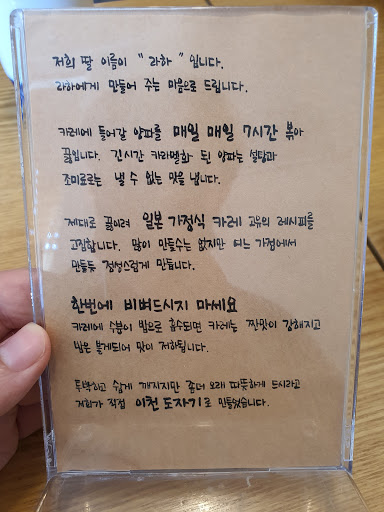 저희 딸 이름이 " 라하 " 입니다.
라하에게 만들어 주는 마음으로 드립니다.
카레에 들어갈 양파를 매일 매일 7시간 볶아
끓입니다. 긴시간 카라멜화 된 양파는 설탕과
조미료로는 낼 수 없는 맛을 냅니다.
제대로 끓이려 일본 가정식 카레 고유의 레시피를
고집합니다. 많이 만들수는 없지만 여느 가정에서
만들듯 정성스럽게 만듭니다.
한번에 비벼드시지 마세요
카레에 수분이 밥으로 흡수되면 카레는 짠맛이 강해지고
밥은 불게되어 맛이 저하됩니다.
투박하고 쉽게 깨지지만 좀더 오래 따뜻하게 드시라고
저희가 직접 이천 도자기로 만들었습니다.